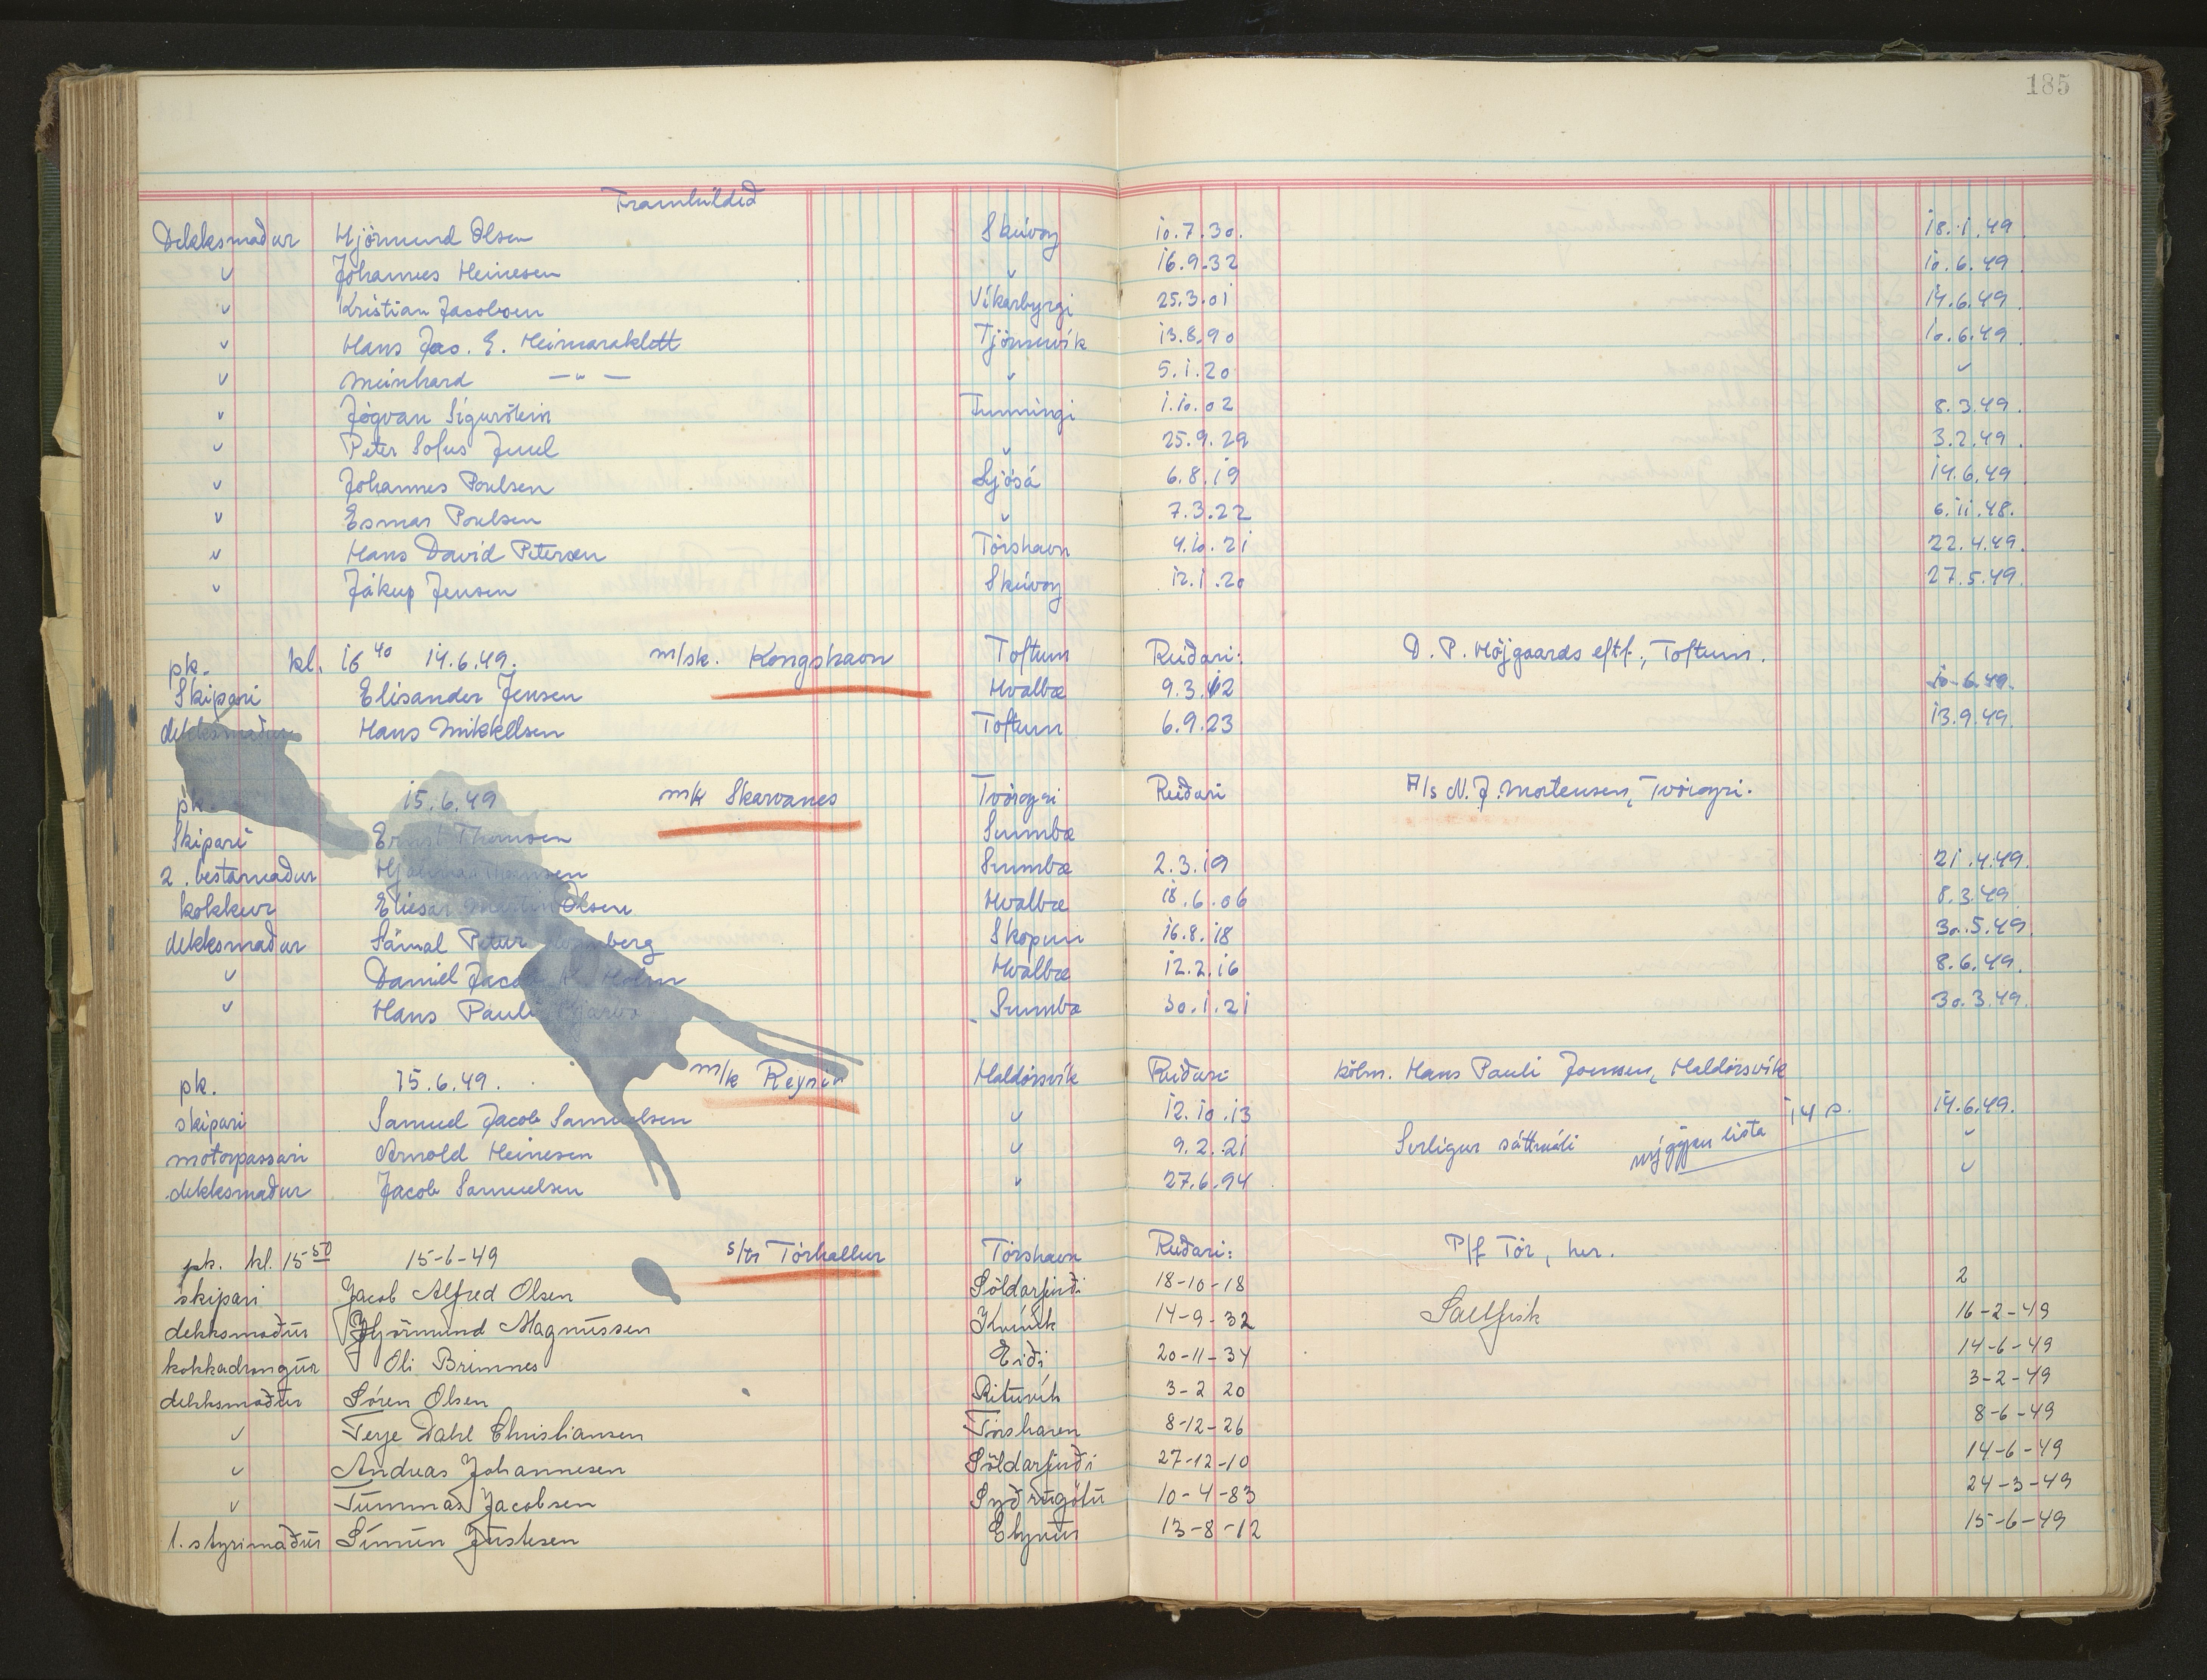 185
Framhildið
Dekksmaður Hjörmund Olsen Skúvoy 10.7.30. 18.1.49.
" Johannes Heinesen " 16.9.32 10.6.49.
" Kristian Jacobsen Víkarbyrgi 25.3.01 14.6.49.
" Hans Jac. E. Heimaraklett Tjörnuvík 13.8.90 10.6.49.
" Meinhard —"— " 5.1.20 "
" Jógvan Sigurstein Funningi 1.10.02 8.3.49.
" Peter Sofus Juul " 25.9.29 3.2.49.
" Johannes Poulsen Ljósá 6.8.19 14.6.49
" Esmar Poulsen " 7.3.22 6.11.48.
" Hans David Petersen Tórshavn 4.10.21 22.4.49.
" Jákup Jensen Skúvoy 12.1.20 27.5.49.
pk. kl. 16 40 14.6.49. m/sk. Kongshavn Toftum Reiðari: D. P. Höjgaards eftf., Toftum.
Skipari Elisander Jensen Hvalbæ 9.3.12 10-6.49.
dekksmaður Hans Mikkelsen Toftum 6.9.23 13.9.49.
pk. 15.6.49 m/k Skarvanes Tvöroyri Reiðari A/s N. J. Mortensen, Tvöroyri.
Skipari Ernst Thomsen Sumbæ
2. bestamaður Hjalmar Thomsen Sumbæ 2.3.19 21.4.49.
kokkur Eliesar Martin Olsen Hvalbæ 18.6.06 8.3.49.
dekksmaður Sámal Petur Skopun 16.8.18 30.5.49.
" Daniel Jacob K. Holm Hvalbæ 12.2.16 8.6.49.
" Hans Pauli Sumbæ 30.1.21 30.3.49.
pk. 15.6.49. m/k Reynir Haldórsvík Reiðari kölm. Hans Pauli Joensen, Haldórsvík
skipari Samuel Jacob Samuelsen " 12.10.13 14.6.49.
motorpassari Arnold Heinesen " 9.2.21 Serligur sáttmáli nýggjan lista 14 s. "
dekksmaður Jacob Samuelsen " 27.6.94 "
pk. kl. 15 50 15-6-49 s/tr Tórhallur Tórshavn Reiðari: P/f Tór, her.
skipari Jacob Alfred Olsen Söldarfirði 18-10-18 2
dekksmaður Hjörmund Magnussen Kvívík 14-9-32 Saltfisk 16-2-49
kokkadrongur Oli Brimnes Eiði 20-11-34 14-6-49
dekksmaður Sören Olsen Rituvík 3-2 20 3-2-49
" Terje Dahl Christiansen Tórshavn 8-12-26 8-6-49
" Andreas Johannesen Söldarfirði 27-12-10 14-6-49
" Tummas Jacobsen Syðrugötu 10-4-83 24-3-49
1. stýrimaður Símun Justesen Elduvík 13-8-12 15-6-49